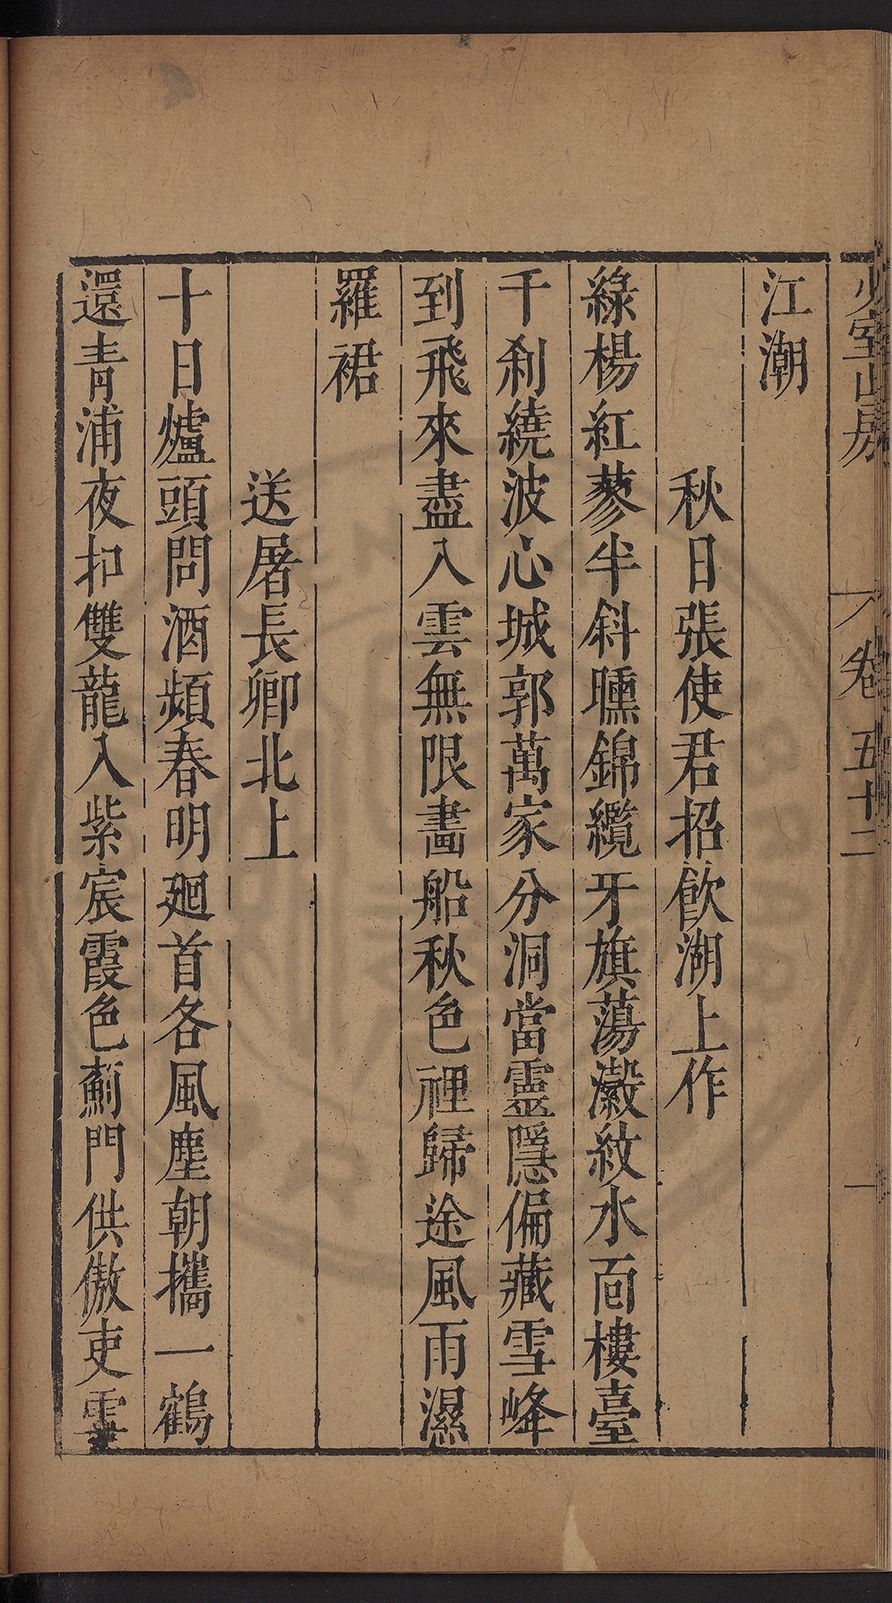 少室山房
卷五十二
一
江潮
秋日張使君招飲湖上作
綠楊紅蓼半斜曛錦纜牙旗蕩瀫紋水面樓臺
千刹繞波心城郭萬家分洞當靈隱偏藏雪峰
到飛來盡入雲無限畫船秋色裡歸途風雨濕
羅裙
送屠長卿北上
十日爐頭問酒頻春明廻首各風塵朝攜一鶴
還青浦夜扣雙龍入紫宸霞色薊門供傲吏雲